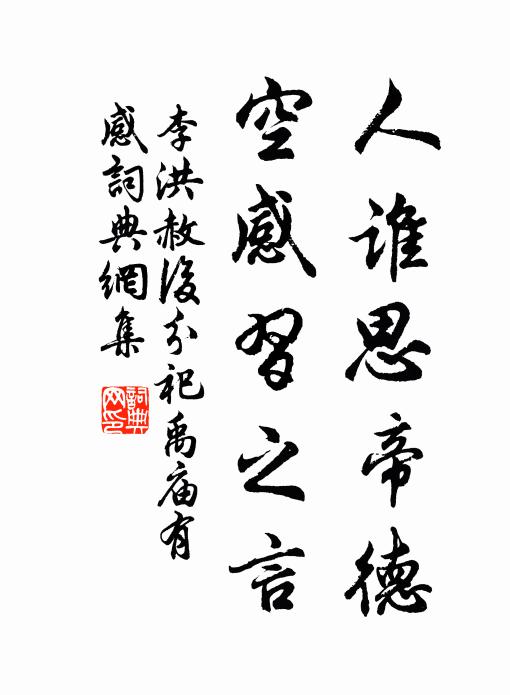 人谁思帝德
空感習之言
李洪赦後分祀禹庙有
感詞典網集
詞典
网印